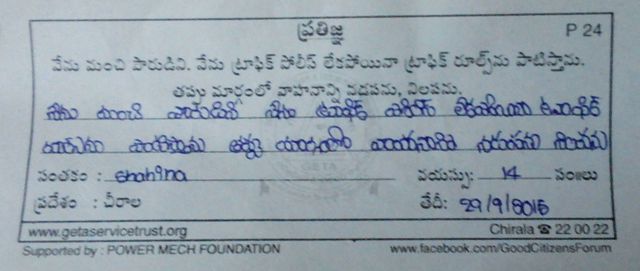 ప్రతిజ్ఞ P 24
నేను మంచి పౌరుడిని. నేను ట్రాఫిక్ పోలీస్ లేకపోయినా ట్రాఫిక్ రూల్స్‌ను పాటిస్తాను.
తప్పు మార్గంలో వాహనాన్ని నడపను, నిలపను.
నేను మంచి పౌరుడిని నేను ట్రాఫిక్ పోలీస్ లేకపోయినా ట్రాఫిక్
తప్పు
సంతకం : Shahina వయస్సు: 14 సం॥లు
ప్రదేశం : చీరాల తేదీ: 29/9/2015
GETA
www.getaservicetrust.org Chirala ☎ 22 00 22
Supported by : POWER MECH FOUNDATION www.facebook.com/GoodCitizensForum